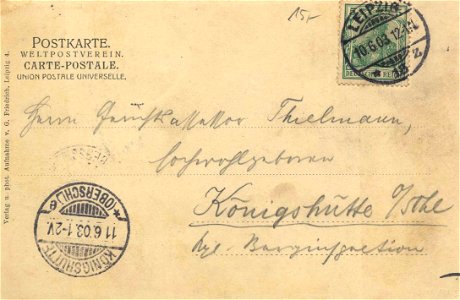 15,-
POSTKARTE.
WELTPOSTVEREIN.
CARTE-POSTALE.
UNION POSTALE UNIVERSELLE.
LEIPZIG
10.6.03. 12-1
2
Verlag u. phot. Aufnahme v. G. Friedrich, Leipzig 4.
Herrn Gerichtsassessor Thielmann,
Hochwohlgeboren
Königshütte
Kgl. Berginspection
(OBERSCHL.)
11.6.03.1-2V
KÖNIGSHÜTTE